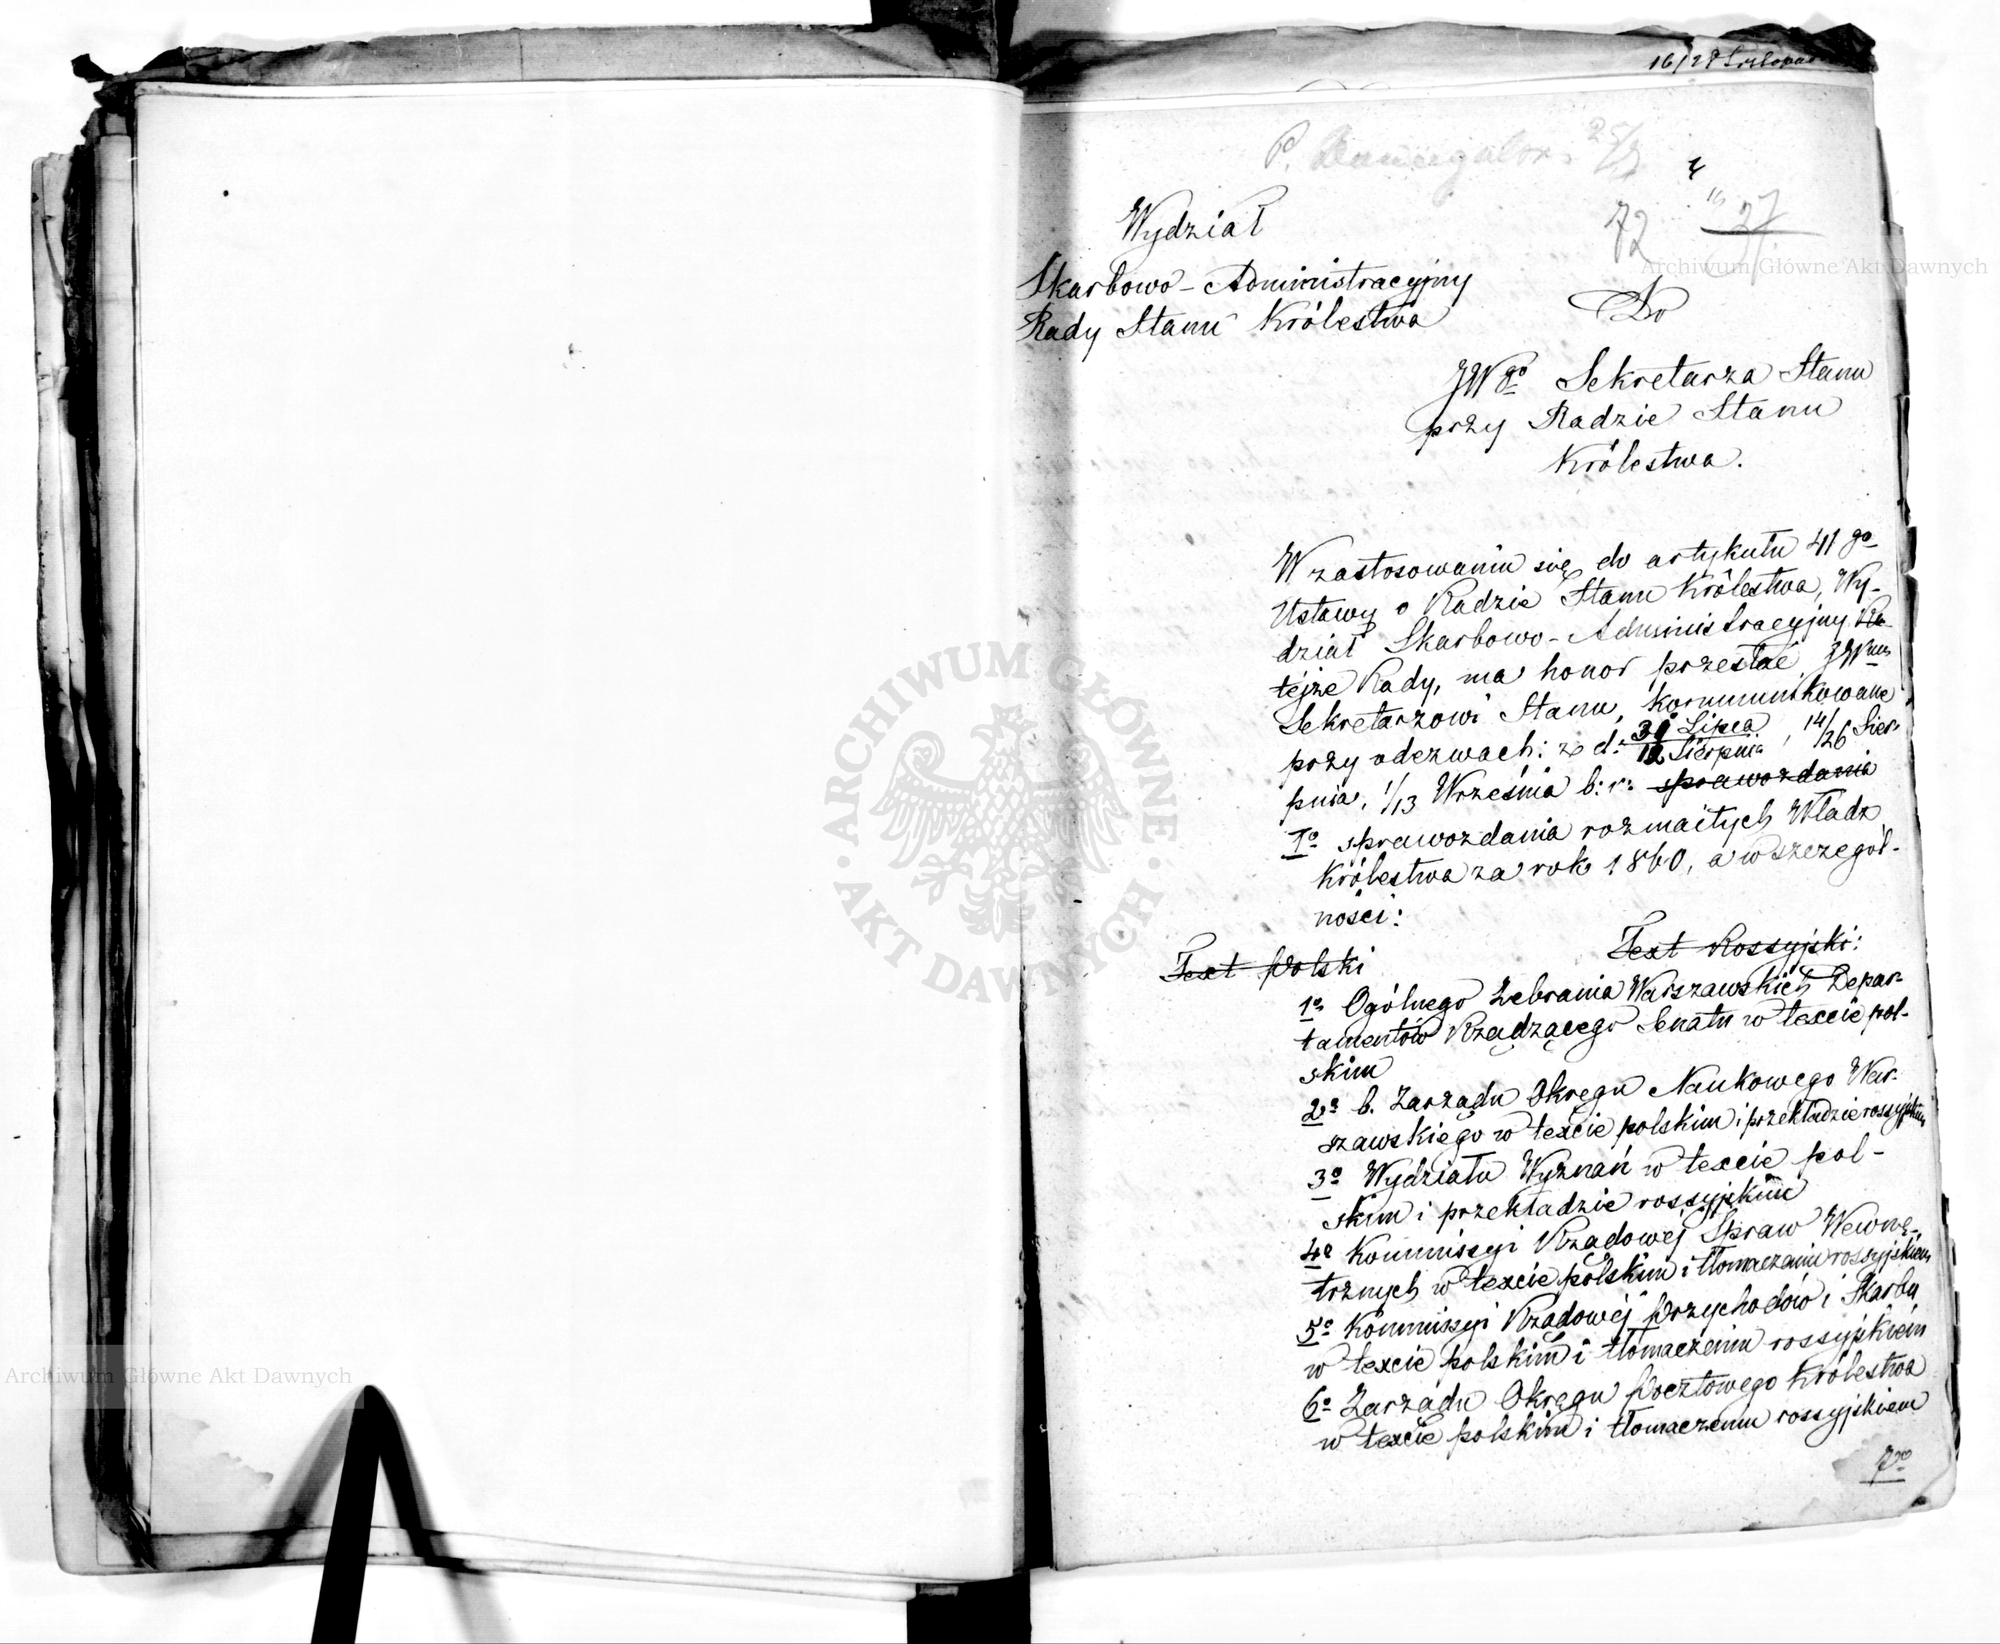 16/28 Listopad
25/3
72
27
Wydział
Skarbowo-Administracyjny
Rady Stanu Królestwa
Do
JWgo Sekretarza Stanu
przy Radzie Stanu
Królestwa.
W zastosowaniu się do artykułu 41 go
Ustawy o Radzie Stanu Królestwa, Wy-
dział Skarbowo-Administracyjny Ra-
tejże Rady, ma honor przesłać JWmu
Sekretarzowi Stanu, kommunikowane
przy odezwach: z d. 31 Lipca / 12 Sierpnia, 14/26 Sier-
pnia, 1/13 Września b: r: sprawozdania
1o sprawozdania rozmaitych Władz
Królestwa za rok 1860, a w szczegól-
ności:
Text Polski
Text Rossyjski:
1o Ogólnego Zebrania Warszawskich Depar-
tamentów Rządzącego Senatu w texcie pol-
skim
2o b. Zarządu Okręgu Naukowego War-
szawskiego w texcie polskim i przekładzie rossyjskim
3o Wydziału Wyznań w texcie pol-
skim i przekładzie rossyjskim
4o Kommissyi Rządowej Spraw Wewnę-
trznych w texcie polskim i tłomaczeniu rossyjskiem
5o Kommissyi Rządowej Przychodów i Skarbu
w texcie polskim i tłomaczeniu rossyjskiem
6o Zarządu Okręgu Pocztowego Królestwa
w texcie polskim i tłomaczeniu rossyjskiem
7o
Archiwum Główne Akt Dawnych
ARCHIWUM GŁÓWNE AKT DAWNYCH
Archiwum Główne Akt Dawnych